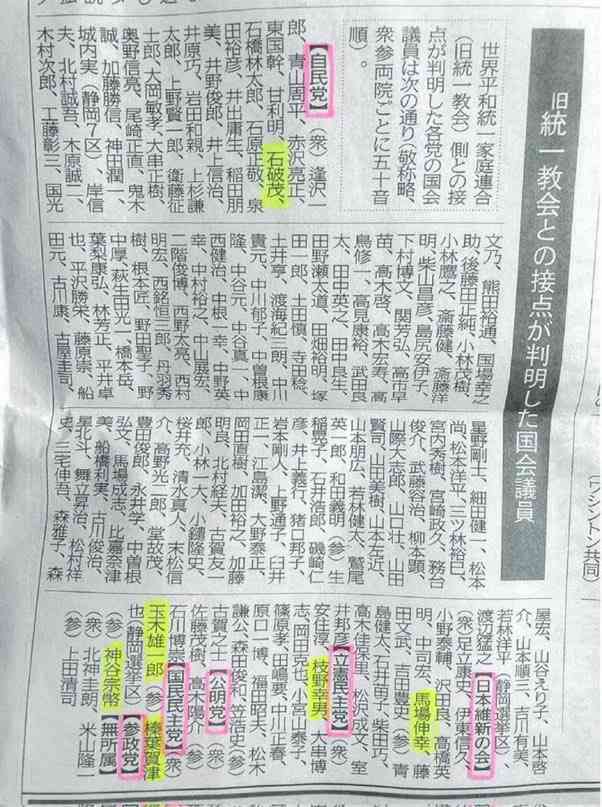 旧統一教会との接点が判明した国会議員
世界平和統一家庭連合
（旧統一教会）側との接
点が判明した各党の国会
議員は次の通り（敬称略、
衆参両院ごとに五十音
順）。
【自民党】（衆）逢沢一
郎、青山周平、赤沢亮正、
東国幹、甘利明、石破茂、
石橋林太郎、石原正敬、泉
田裕彦、井出庸生、稲田朋
美、井野俊郎、井上信治、
井原巧、岩田和親、上杉謙
太郎、上野賢一郎、衛藤征
士郎、大岡敏孝、大串正樹、
奥野信亮、尾崎正直、鬼木
誠、加藤勝信、神田潤一、
城内実（静岡７区）、岸信
夫、北村誠吾、木原誠二、
木村次郎、工藤彰三、国光
文乃、熊田裕通、国場幸之
助、後藤田正純、小林茂樹、
小林鷹之、斎藤健、斎藤洋
明、柴山昌彦、島尻安伊子、
下村博文、関芳弘、高市早
苗、高木啓、高木宏寿、高
鳥修一、高見康裕、武田良
太、田中英之、田中良生、
田野瀬太道、田畑裕明、塚
田一郎、土田慎、寺田稔、
土井亨、渡海紀三朗、中川
貴元、中川郁子、中曽根康
隆、中谷元、中谷真一、中
西健治、中根一幸、中野英
幸、中村裕之、中山展宏、
二階俊博、西野太亮、西村
明宏、西銘恒三郎、丹羽秀
樹、根本匠、野田聖子、野
中厚、萩生田光一、橋本岳、
葉梨康弘、林芳正、平井卓
也、平沢勝栄、藤原崇、船
田元、古川康、古屋圭司、
星野剛士、細田健一、松本
尚、松本洋平、三ツ林裕巳、
宮内秀樹、宮崎政久、務台
俊介、武藤容治、柳本顕、
山際大志郎、山口壮、山田
賢司、山田美樹、山本左近、
山本朋広、若林健太、鷲尾
英一郎、和田義明（参）生
稲晃子、石井浩郎、磯崎仁
彦、井上義行、猪口邦子、
岩本剛人、上野通子、臼井
正一、江島潔、大野泰正、
岡田直樹、加田裕之、加藤
明良、北村経夫、古賀友一
郎、小林一大、小鑓隆史、
桜井充、清水真人、末松信
介、高野光二郎、堂故茂、
豊田俊郎、永井学、中曽根
弘文、馬場成志、比嘉奈津
美、船橋利実、古川俊治、
星北斗、舞立昇治、松村祥
史、三宅伸吾、森雅子、森
屋宏、山谷えり子、山本啓
介、山本順三、吉川有美、
若林洋平（静岡選挙区）
渡辺猛之【日本維新の会】
（衆）足立康史、伊東信久、
小野泰輔、沢田良、高橋英
明、中司宏、馬場伸幸、藤
田文武、吉田豊史（参）青
島健太、石井苗子、柴田巧、
高木佳保里、松沢成文、室
井邦彦【立憲民主党】（衆）
安住淳、枝野幸男、大串博
志、岡田克也、小宮山泰子、
篠原孝、田嶋要、中川正春、
原口一博、福田昭夫、松木
謙公、森田俊和、笠浩史（参）
古賀之士【公明党】（衆）
佐藤茂樹、高木陽介（参）
石川博崇【国民民主党】（衆）
玉木雄一郎（参）榛葉賀津
也（静岡選挙区）【参政党】
（参）神谷宗幣【無所属】
（衆）北神圭朗、米山隆一
（参）上田清司
（ワシントン共同）